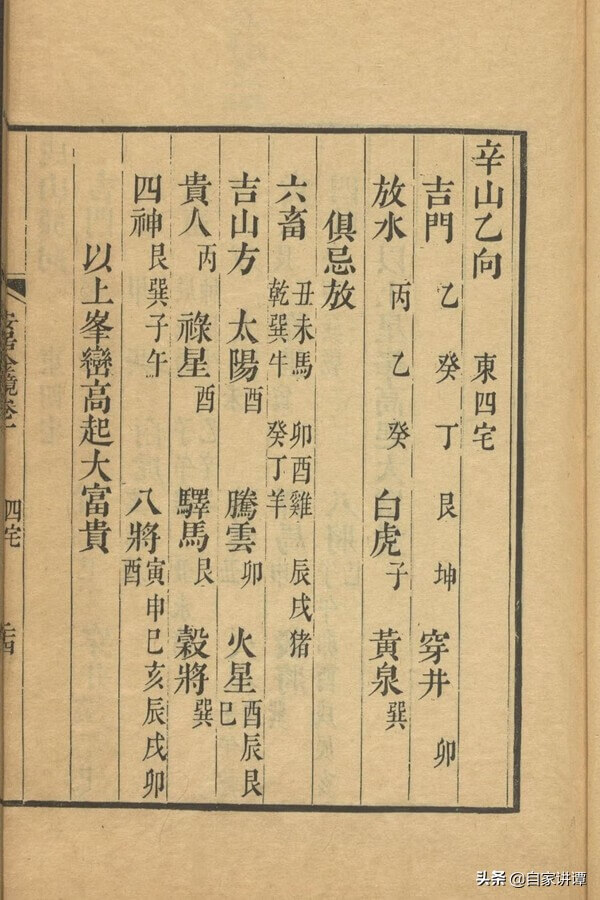 辛山乙向 東四宅
吉門 乙 癸 丁 艮 坤 穿井 卯
放水 丙 乙 癸 白虎 子 黃泉 巽
俱忌放
六畜 丑未馬 卯酉雞 辰戌猪
乾巽牛 癸丁羊
吉山方 太陽 酉 騰雲 卯 火星 酉辰艮
巳
貴人 丙 祿星 酉 驛馬 艮 穀將 巽
四神 艮巽子午 八將 寅申巳亥辰戌卯
酉
以上峯巒高起大富貴
四宅
头条 @自家讲谭